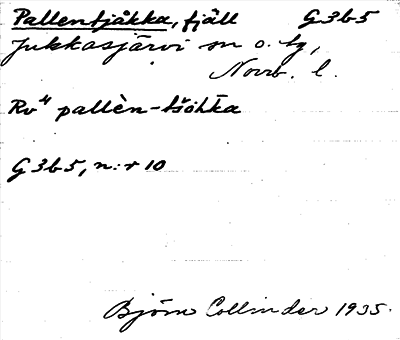 Pallentjåkka, fjäll G3b5
Jukkasjärvi sn o. tg,
Norrb. l.
Rv⁴ pallèn-tšohka
G3b5, n:r 10
Björn Collinder 1935.